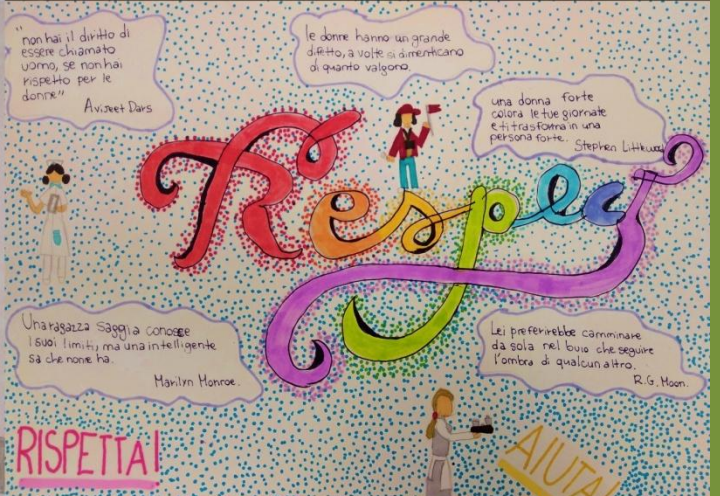 "non hai il diritto di
essere chiamato
uomo, se non hai
rispetto per le
donne"
Avijeet Dars
le donne hanno un grande
difetto, a volte si dimenticano
di quanto valgono.
una donna forte
colora le tue giornate
e ti trasforma in una
persona forte.
Stephen
Respect
Una ragazza saggia conosce
i suoi limiti, ma una intelligente
sa che non ne ha.
Marilyn Monroe.
Lei preferirebbe camminare
da sola nel buio che seguire
l'ombra di qualcun altro.
R.G. Moon.
RISPETTA!
AIUTA!